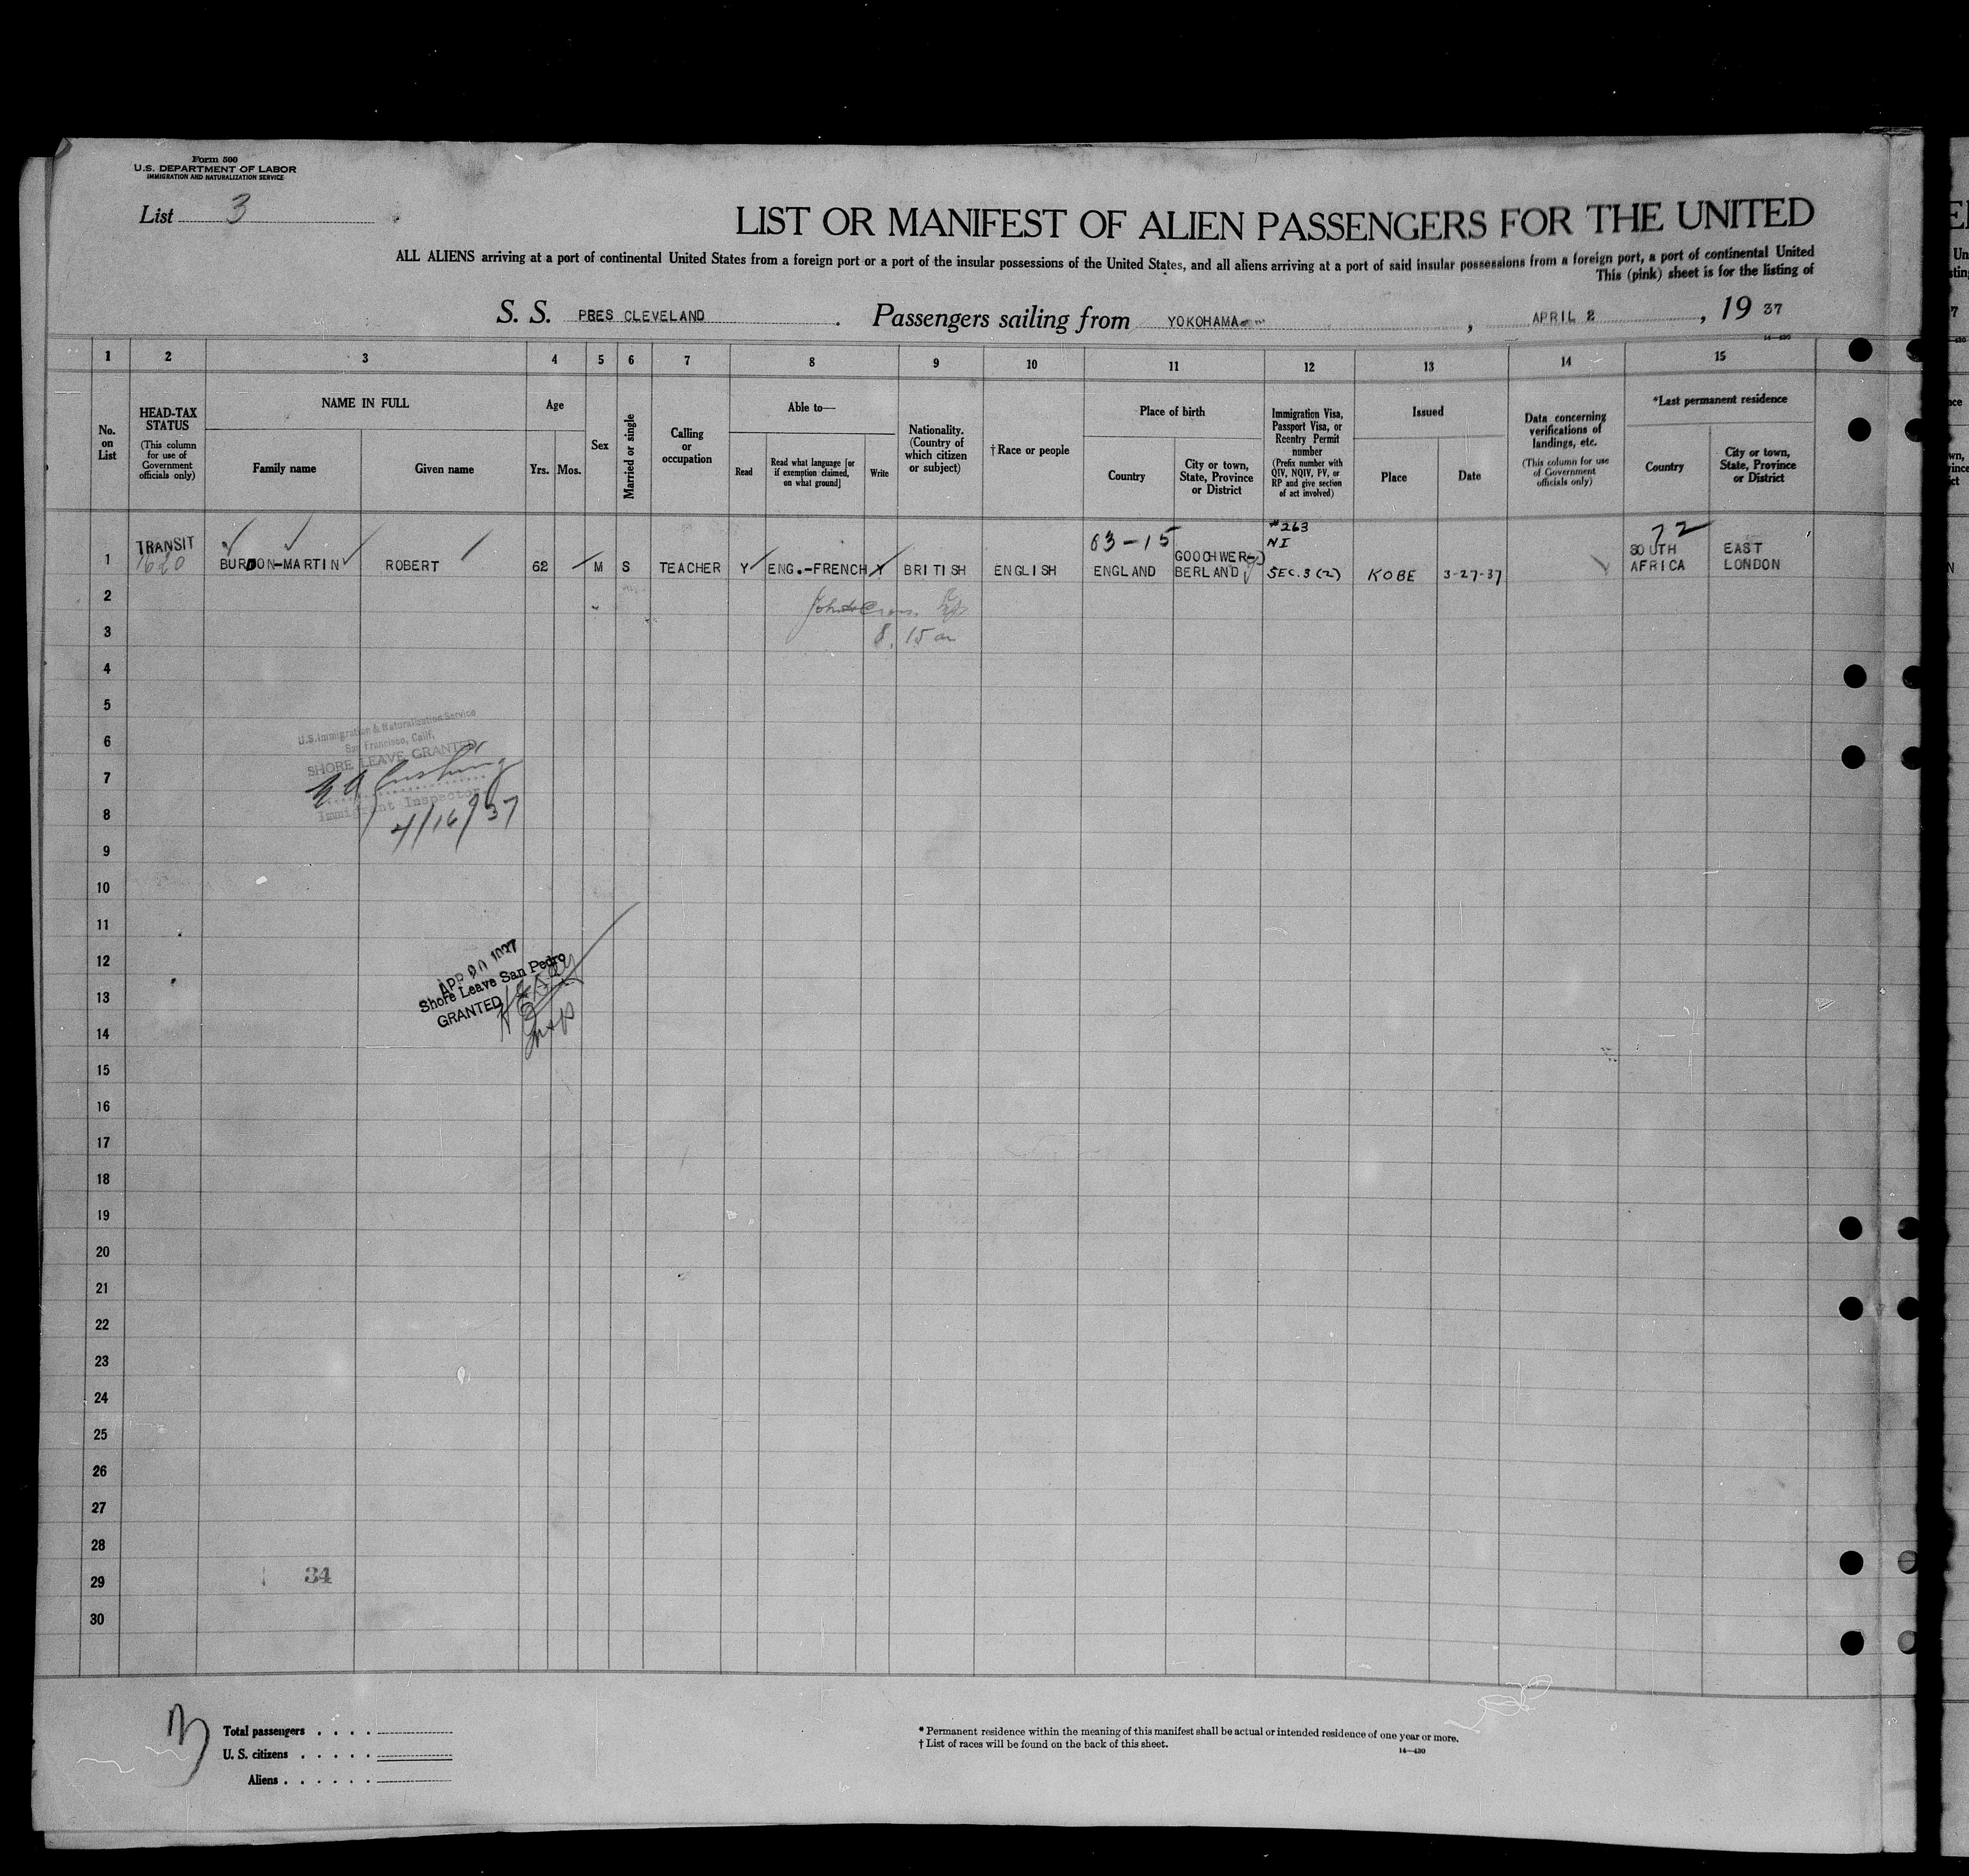 Form 500
U.S. DEPARTMENT OF LABOR
IMMIGRATION AND NATURALIZATION SERVICE
List 3
LIST OR MANIFEST OF ALIEN PASSENGERS FOR THE UNITED
ALL ALIENS arriving at a port of continental United States from a foreign port or a port of the insular possessions of the United States, and all aliens arriving at a port of said insular possessions from a foreign port, a port of continental United
This (pink) sheet is for the listing of
S. S. PRES CLEVELAND . Passengers sailing from YOKOHAMA , APRIL 2 , 19 37
14—430
1 2 3 4 5 6 7 8 9 10 11 12 13 14 15
No. on List
HEAD-TAX STATUS
(This column for use of Government officials only)
NAME IN FULL
Family name
Given name
Age
Yrs.
Mos.
Sex
Married or single
Calling or occupation
Able to—
Read
Read what language [or if exemption claimed, on what ground]
Write
Nationality. (Country of which citizen or subject)
† Race or people
Place of birth
Country
City or town, State, Province or District
Immigration Visa, Passport Visa, or Reentry Permit number
(Prefix number with QIV, NQIV, PV, or RP and give section of act involved)
Issued
Place
Date
Data concerning verifications of landings, etc.
(This column for use of Government officials only)
*Last permanent residence
Country
City or town, State, Province or District
1 TRANSIT 1620 BURDON-MARTIN ROBERT 62 M S TEACHER Y ENG.-FRENCH Y BRITISH ENGLISH 03-15 ENGLAND GOOCHWER-BERLAND #263 NI SEC. 3 (2) KOBE 3-27-37 72 SOUTH AFRICA EAST LONDON
2
3 8.15 am
4
5
6
U.S. Immigration & Naturalization Service
San Francisco, Calif.
SHORE LEAVE GRANTED
7
Immigrant Inspector
8 4/16/37
9
10
11
12
Shore Leave San Pedro
13
GRANTED
Insp
14
15
16
17
18
19
20
21
22
23
24
25
26
27
28
29 34
30
Total passengers . . . .
U. S. citizens . . . . .
Aliens . . . . . .
* Permanent residence within the meaning of this manifest shall be actual or intended residence of one year or more.
† List of races will be found on the back of this sheet.
14—430